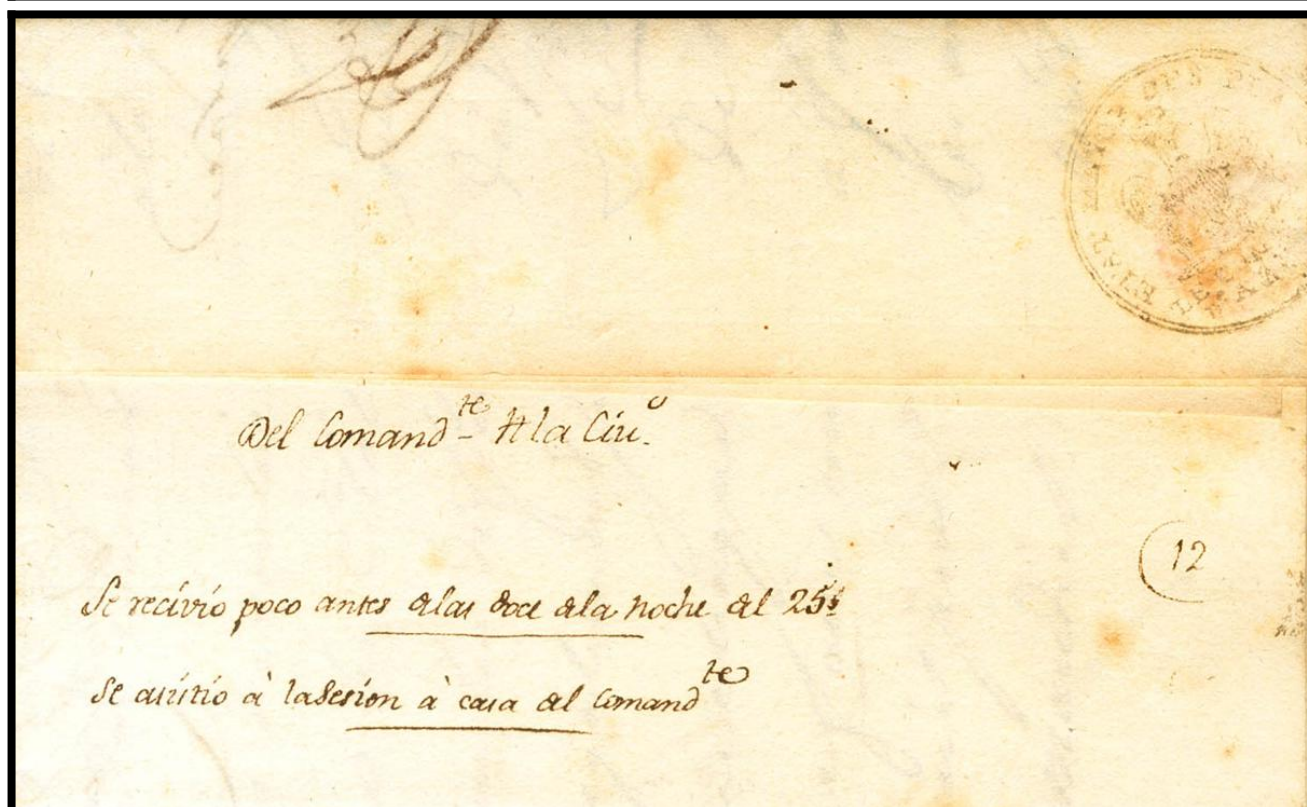 Del Comand.te de la Ciu.d
12
Se recivió poco antes delas doce dela noche del 25,,
Se asistió à la Sesion à casa del Comand.te